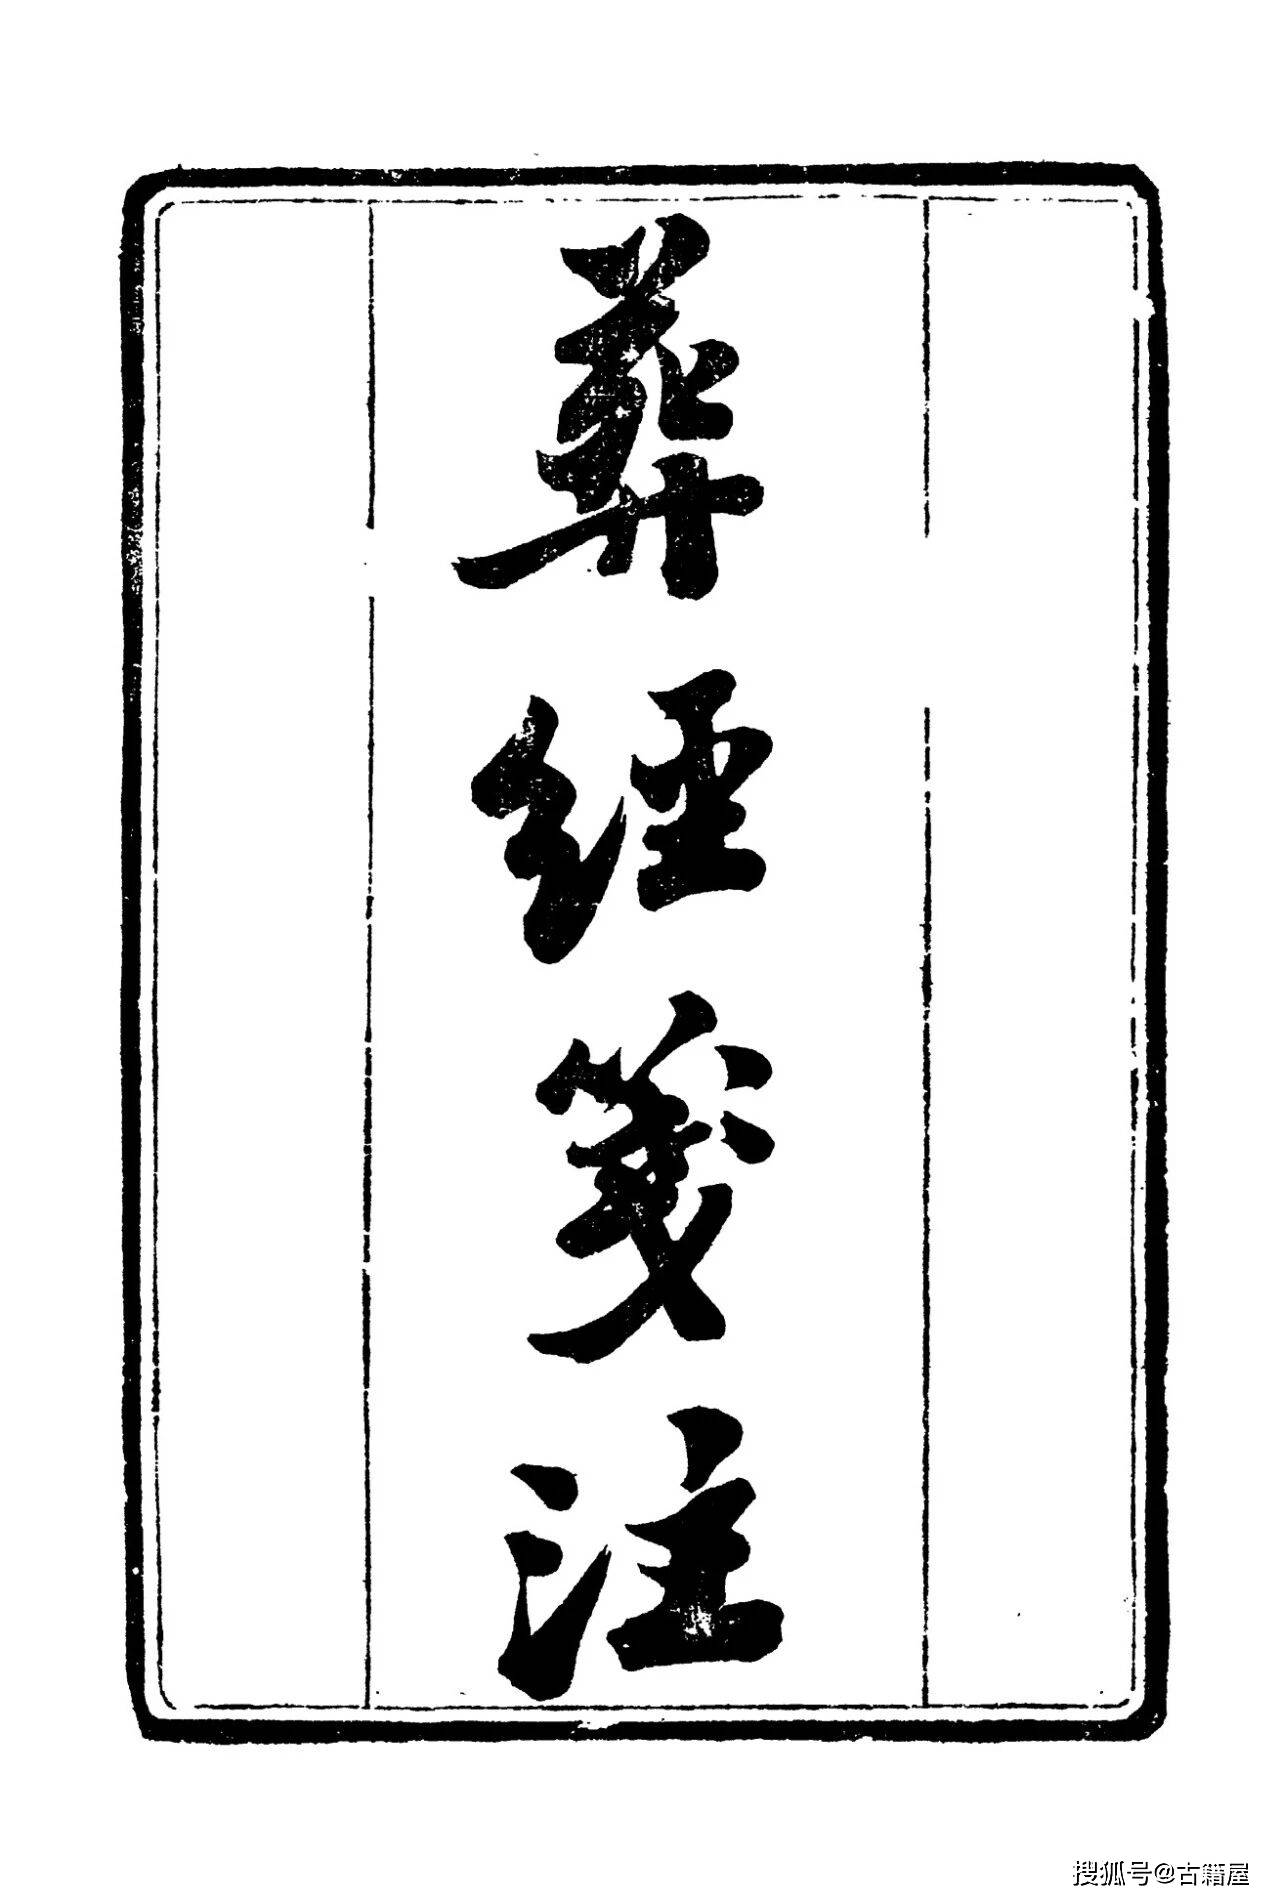 葬經箋注
搜狐号@古籍屋